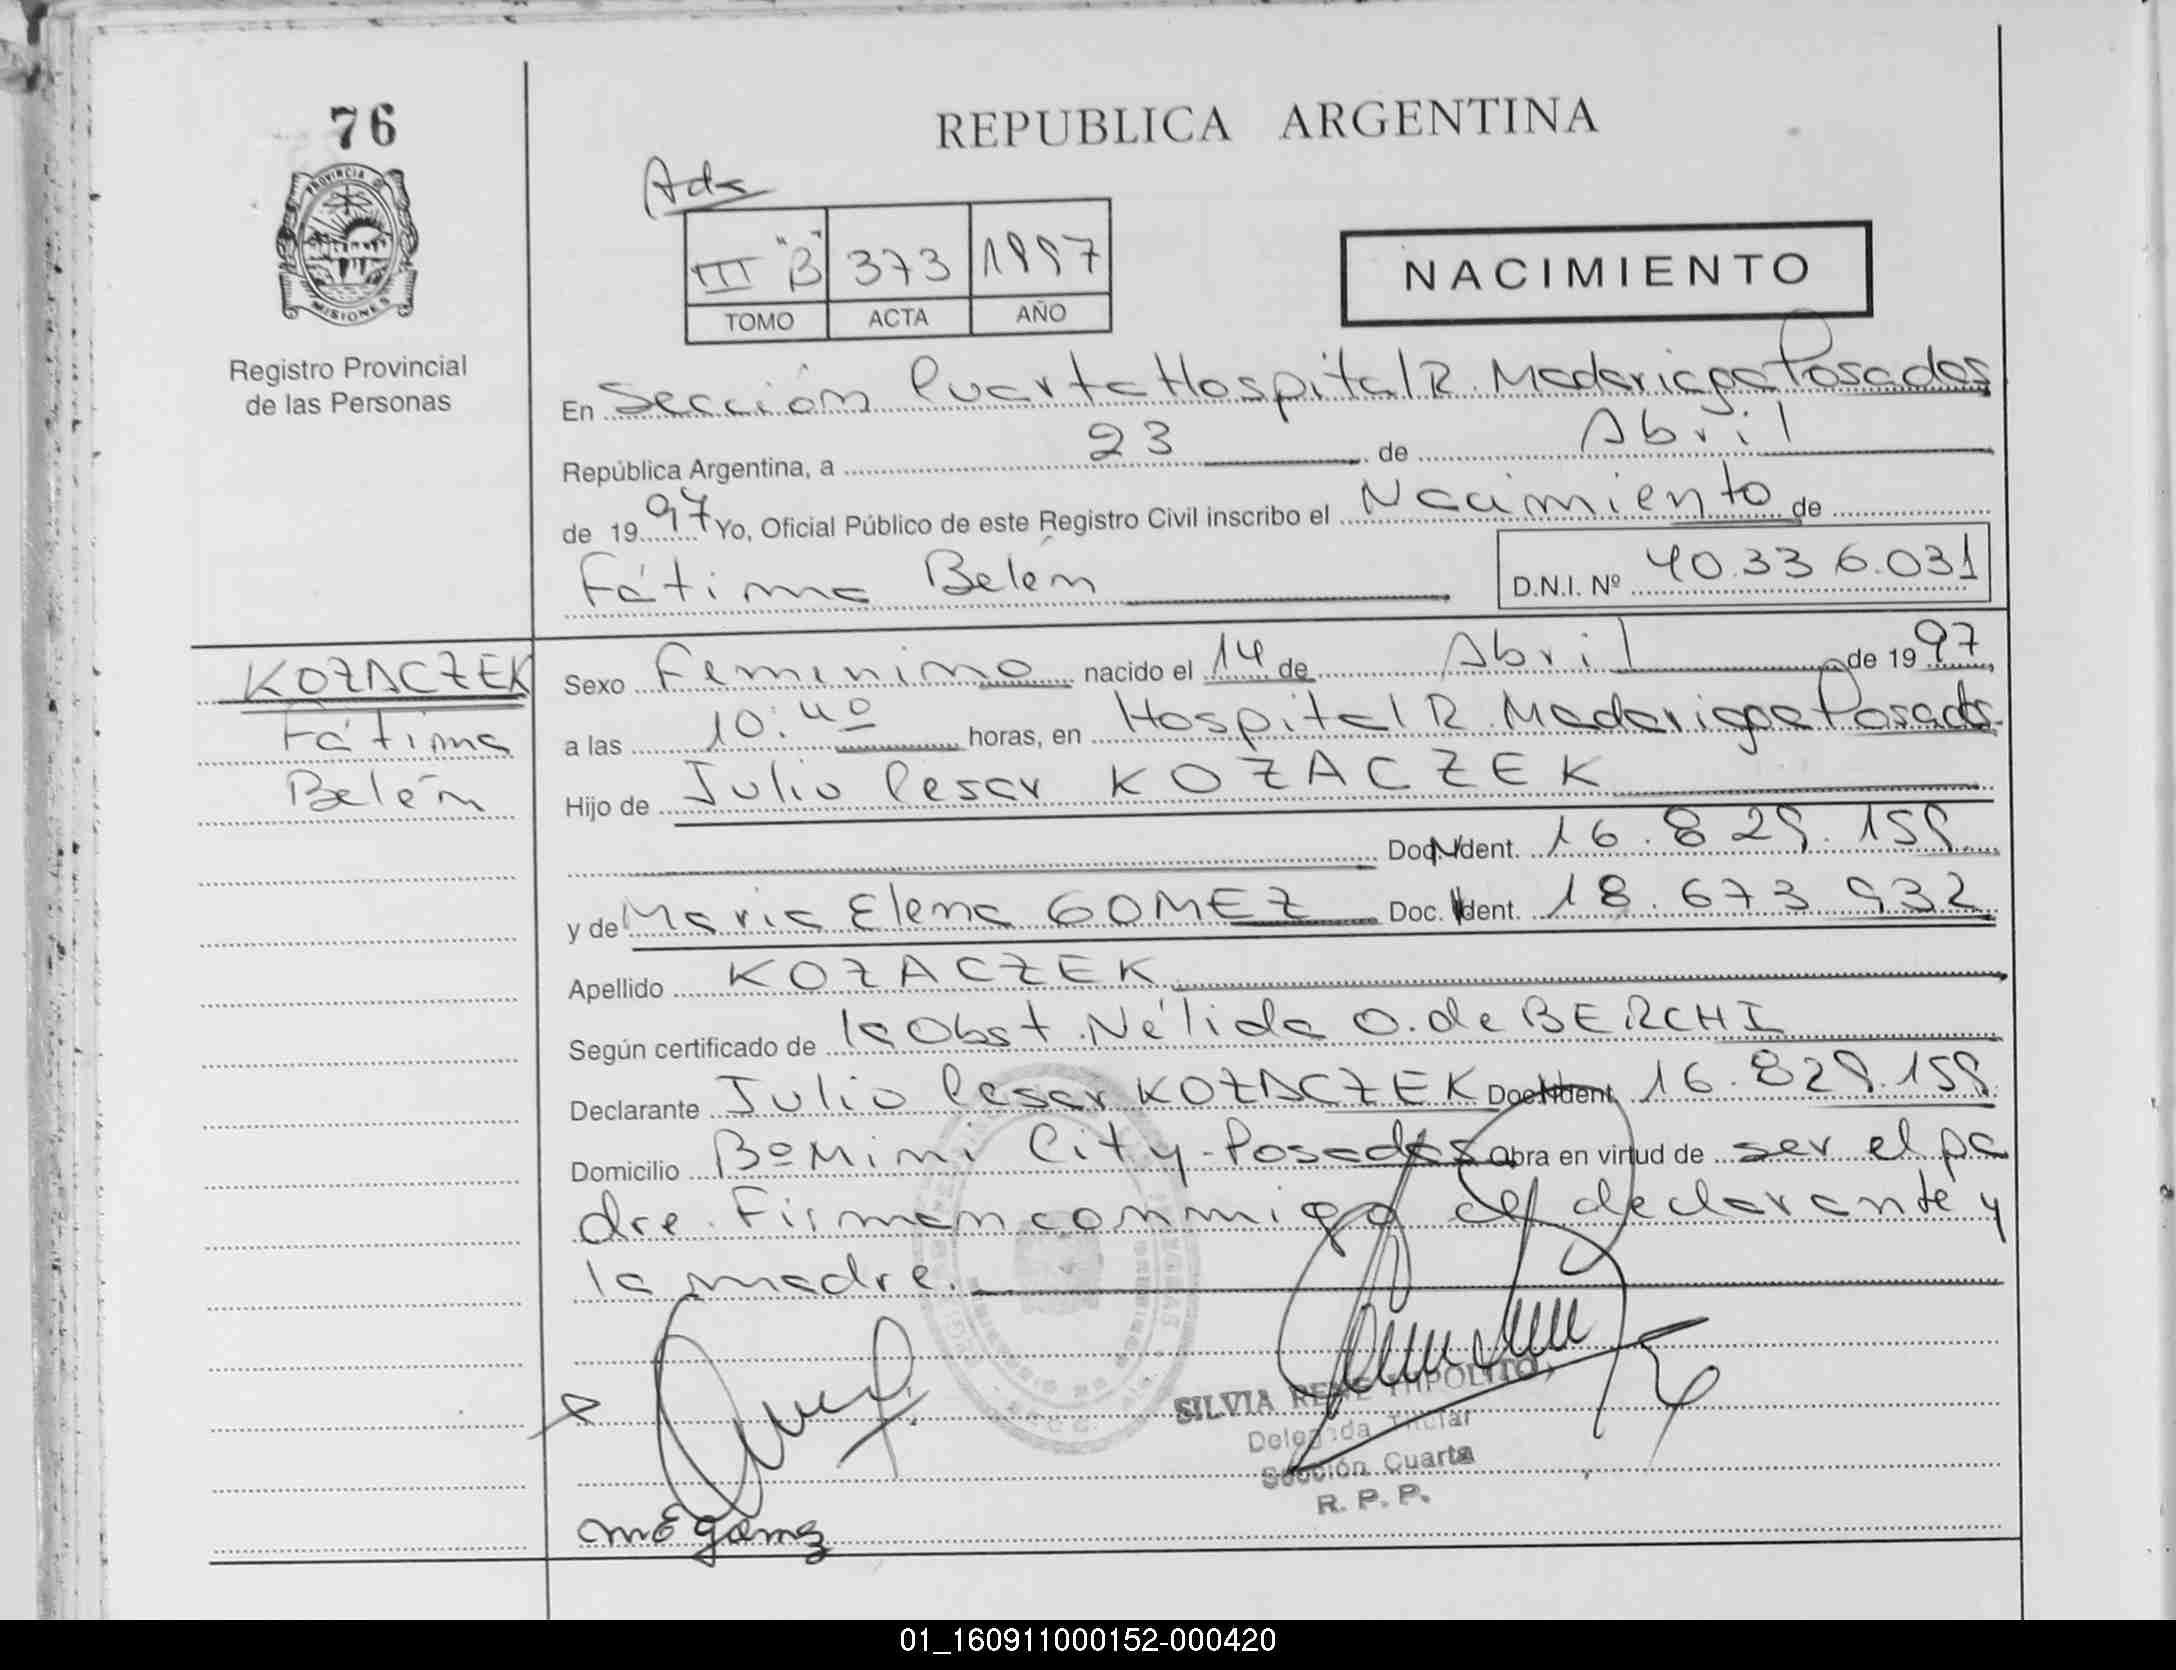 76
REPUBLICA ARGENTINA
PROVINCIA DE
MISIONES
Registro Provincial
de las Personas
III "B" 373 1997
TOMO ACTA AÑO
NACIMIENTO
En Sección Cuarta Hospital R. Madariaga Posadas
República Argentina, a 23 de Abril
de 1997 Yo, Oficial Público de este Registro Civil inscribo el Nacimiento de
Fátima Belén D.N.I. Nº 40.336.031
KOZACZEK
Fátima
Belén
Sexo Femenino nacido el 14 de Abril de 1997
a las 10:40 horas, en Hospital R. Madariaga Posadas
Hijo de Julio Cesar KOZACZEK
Doc. Ident. 16.829.159
y de Maria Elena GOMEZ Doc. Ident. 18.673.932
Apellido KOZACZEK
Según certificado de la Obst. Nélida O. de BERCHI
Declarante Julio Cesar KOZACZEK Doc. Ident. 16.829.159
Domicilio Bº Mini City - Posadas Obra en virtud de ser el pa
dre. Firman conmigo el declarante y
la madre.
SILVIA RENE HIPOLITO
Delegada Titular
Sección Cuarta
R. P. P.
01_160911000152-000420